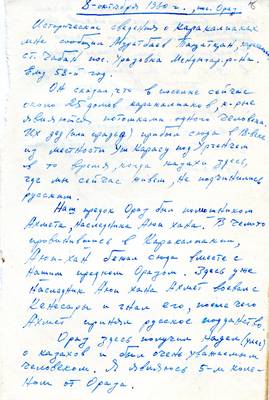 8-октября 1960 г., пос. Орал
Исторические сведения о каракалпаках
мне сообщил
Ему 58-й год.
Он сказал, что в поселке сейчас
около 25 домов каракалпаков, к-рые
являются потомками одного человека.
Их дед (или прадед) прибыл сюда в
из местности Уш Карасу под Ургенчем
в то время, когда казахи здесь,
где мы сейчас живем, не подчинялись
русским.
Наш предок Ораз был помощником
Ахмета, наследника хана. В чем-то
провинившись в Каракалпакии,
хан бежал сюда вместе с
нашим предком Оразом. Здесь уже
наследник хана Ахмет воевал с
Кенесары и гнал его, после чего
Ахмет принял русское подданство.
Ораз здесь получил надел
у казахов и был очень уважаемым
человеком. Я являюсь 5-м коле-
ном от Ораза.